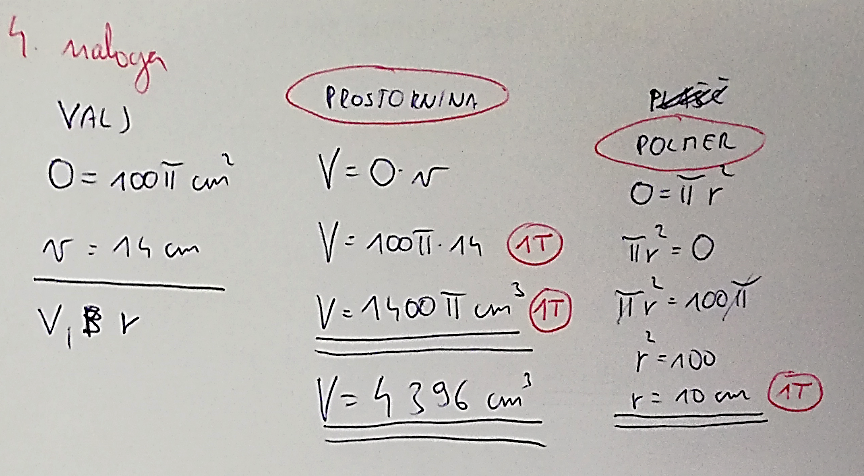 4. naloga
VALJ
O = 100π cm²
v = 14 cm
V, r
PROSTORNINA
V = O · v
V = 100π · 14 1T
V = 1400π cm³ 1T
V = 4396 cm³
PLAŠČ
POLMER
O = π r²
πr² = O
πr² = 100π
r² = 100
r = 10 cm 1T